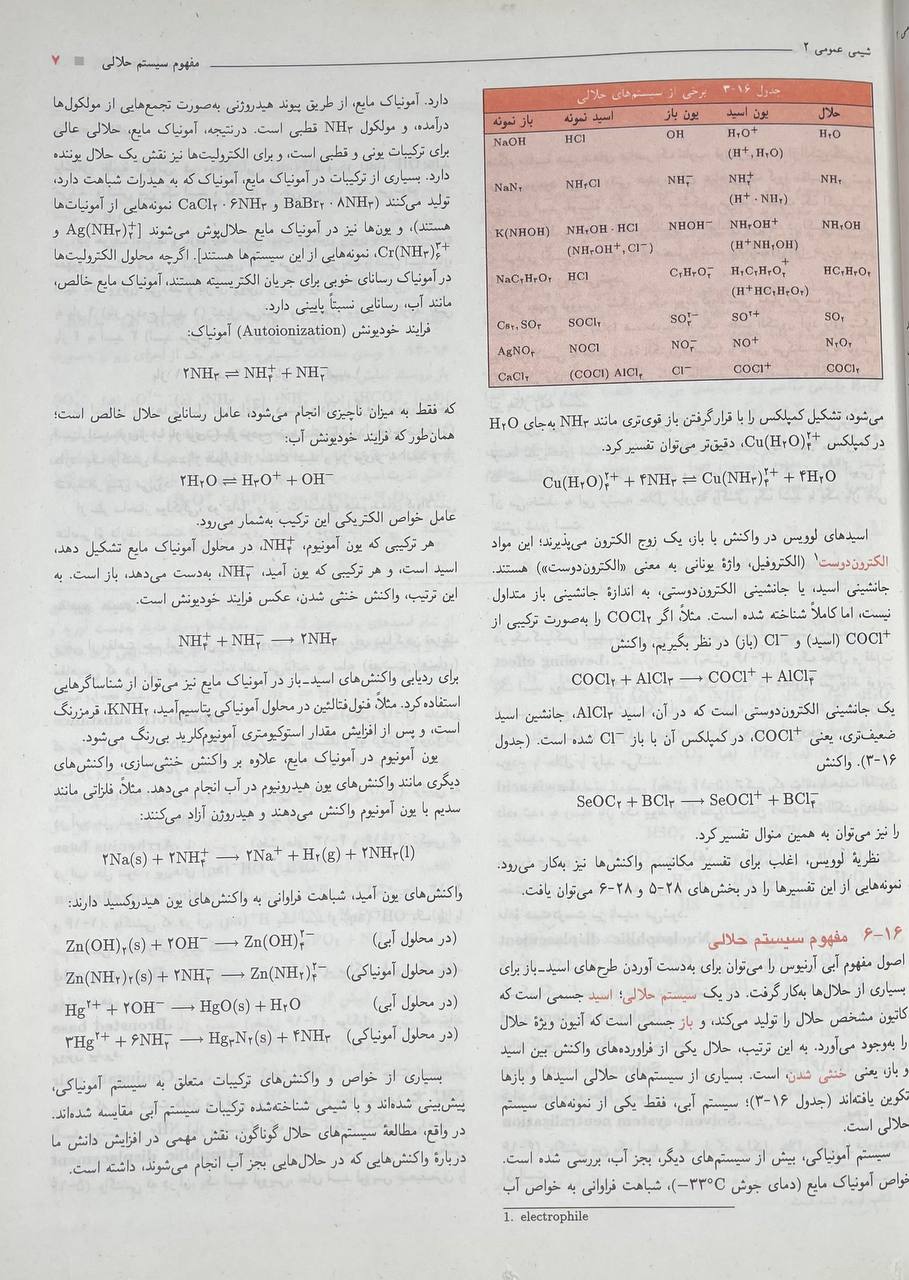 شیمی عمومی ۲
مفهوم سیستم حلالی ■ ۷
جدول ۱۶-۳ برخی از سیستم‌های حلالی
حلال یون اسید یون باز اسید نمونه باز نمونه
H۲O H۳O+ OH HCl NaOH
(H+, H۲O)
NH۳ NH۴+ NH۲− NH۴Cl NaN۲
(H+ · NH۳)
NH۲OH NH۳OH+ NHOH− NH۲OH · HCl K(NHOH)
(H+NH۲OH) (NH۳OH+, Cl−)
HC۲H۳O۲ H۲C۲H۳O۲+ C۲H۳O۲− HCl NaC۲H۳O۲
(H+HC۲H۳O۲)
SO۲ SO۲+ SO۳۲− SOCl۲ Cs۲, SO۳
N۲O۴ NO+ NO۳− NOCl AgNO۳
COCl۲ COCl+ Cl− (COCl) AlCl۴ CaCl۲
می‌شود، تشکیل کمپلکس را با قرار گرفتن باز قوی‌تری مانند NH۳ به‌جای H۲O
در کمپلکس Cu(H۲O)۴۲+، دقیق‌تر می‌توان تفسیر کرد.
Cu(H۲O)۴۲+ + ۴NH۳ ⇌ Cu(NH۳)۴۲+ + ۴H۲O
اسیدهای لوویس در واکنش با باز، یک زوج الکترون می‌پذیرند؛ این مواد
الکترون‌دوست۱ (الکتروفیل، واژهٔ یونانی به معنی «الکترون‌دوست») هستند.
جانشینی اسید، یا جانشینی الکترون‌دوستی، به اندازهٔ جانشینی باز متداول
نیست، اما کاملاً شناخته شده است. مثلاً، اگر COCl۲ را به‌صورت ترکیبی از
COCl+ (اسید) و Cl− (باز) در نظر بگیریم، واکنش
COCl۲ + AlCl۳ ⟶ COCl+ + AlCl۴−
یک جانشینی الکترون‌دوستی است که در آن، اسید AlCl۳، جانشین اسید
ضعیف‌تری، یعنی COCl+، در کمپلکس آن با باز Cl− شده است. (جدول
۱۶-۳). واکنش
SeOC۲ + BCl۳ ⟶ SeOCl+ + BCl۴−
را نیز می‌توان به همین منوال تفسیر کرد.
نظریهٔ لوویس، اغلب برای تفسیر مکانیسم واکنش‌ها نیز به‌کار می‌رود.
نمونه‌هایی از این تفسیرها را در بخش‌های ۲۸-۵ و ۲۸-۶ می‌توان یافت.
۱۶-۶ مفهوم سیستم حلالی
اصول مفهوم آبی آرنیوس را می‌توان برای به‌دست آوردن طرح‌های اسید-باز برای
بسیاری از حلال‌ها به‌کار گرفت. در یک سیستم حلالی؛ اسید جسمی است که
کاتیون مشخص حلال را تولید می‌کند، و باز جسمی است که آنیون ویژهٔ حلال
را به‌وجود می‌آورد. به این ترتیب، حلال یکی از فراورده‌های واکنش بین اسید
و باز، یعنی خنثی شدن، است. بسیاری از سیستم‌های حلالی اسیدها و بازها
تکوین یافته‌اند (جدول ۱۶-۳)؛ سیستم آبی، فقط یکی از نمونه‌های سیستم
حلالی است.
سیستم آمونیاکی، بیش از سیستم‌های دیگر، بجز آب، بررسی شده است.
خواص آمونیاک مایع (دمای جوش ۳۳°C−)، شباهت فراوانی به خواص آب
1. electrophile
دارد. آمونیاک مایع، از طریق پیوند هیدروژنی به‌صورت تجمع‌هایی از مولکول‌ها
درآمده، و مولکول NH۳ قطبی است. درنتیجه، آمونیاک مایع، حلالی عالی
برای ترکیبات یونی و قطبی است، و برای الکترولیت‌ها نیز نقش یک حلال یوننده
دارد. بسیاری از ترکیبات در آمونیاک مایع، آمونیاک که به هیدرات شباهت دارد،
تولید می‌کنند (BaBr۲ · ۸NH۳ و CaCl۲ · ۶NH۳ نمونه‌هایی از آمونیات‌ها
هستند)، و یون‌ها نیز در آمونیاک مایع حلال‌پوش می‌شوند [Ag(NH۳)۲+ و
Cr(NH۳)۶۳+، نمونه‌هایی از این سیستم‌ها هستند]. اگرچه محلول الکترولیت‌ها
در آمونیاک رسانای خوبی برای جریان الکتریسیته هستند، آمونیاک مایع خالص،
مانند آب، رسانایی نسبتاً پایینی دارد.
فرایند خودیونش (Autoionization) آمونیاک:
۲NH۳ ⇌ NH۴+ + NH۲−
که فقط به میزان ناچیزی انجام می‌شود، عامل رسانایی حلال خالص است؛
همان‌طور که فرایند خودیونش آب:
۲H۲O ⇌ H۳O+ + OH−
عامل خواص الکتریکی این ترکیب به‌شمار می‌رود.
هر ترکیبی که یون آمونیوم، NH۴+، در محلول آمونیاک مایع تشکیل دهد،
اسید است، و هر ترکیبی که یون آمید، NH۲−، به‌دست می‌دهد، باز است. به
این ترتیب، واکنش خنثی شدن، عکس فرایند خودیونش است.
NH۴+ + NH۲− ⟶ ۲NH۳
برای ردیابی واکنش‌های اسید-باز در آمونیاک مایع نیز می‌توان از شناساگرهایی
استفاده کرد. مثلاً، فنول‌فتالئین در محلول آمونیاکی پتاسیم‌آمید، KNH۲، قرمزرنگ
است، و پس از افزایش مقدار استوکیومتری آمونیوم‌کلرید بی‌رنگ می‌شود.
یون آمونیوم در آمونیاک مایع، علاوه بر واکنش خنثی‌سازی، واکنش‌های
دیگری مانند واکنش‌های یون هیدرونیوم در آب انجام می‌دهد. مثلاً، فلزاتی مانند
سدیم با یون آمونیوم واکنش می‌دهند و هیدروژن آزاد می‌کنند:
۲Na(s) + ۲NH۴+ ⟶ ۲Na+ + H۲(g) + ۲NH۳(l)
واکنش‌های یون آمید، شباهت فراوانی به واکنش‌های یون هیدروکسید دارند:
Zn(OH)۲(s) + ۲OH− ⟶ Zn(OH)۴۲− (در محلول آبی)
Zn(NH۲)۲(s) + ۲NH۲− ⟶ Zn(NH۲)۴۲− (در محلول آمونیاکی)
Hg۲+ + ۲OH− ⟶ HgO(s) + H۲O (در محلول آبی)
۳Hg۲+ + ۶NH۲− ⟶ Hg۳N۲(s) + ۴NH۳ (در محلول آمونیاکی)
بسیاری از خواص و واکنش‌های ترکیبات متعلق به سیستم آمونیاکی،
پیش‌بینی شده‌اند و با شیمی شناخته‌شده ترکیبات سیستم آبی مقایسه شده‌اند.
در واقع، مطالعهٔ سیستم‌های حلال گوناگون، نقش مهمی در افزایش دانش ما
دربارهٔ واکنش‌هایی که در حلال‌هایی بجز آب انجام می‌شوند، داشته است.